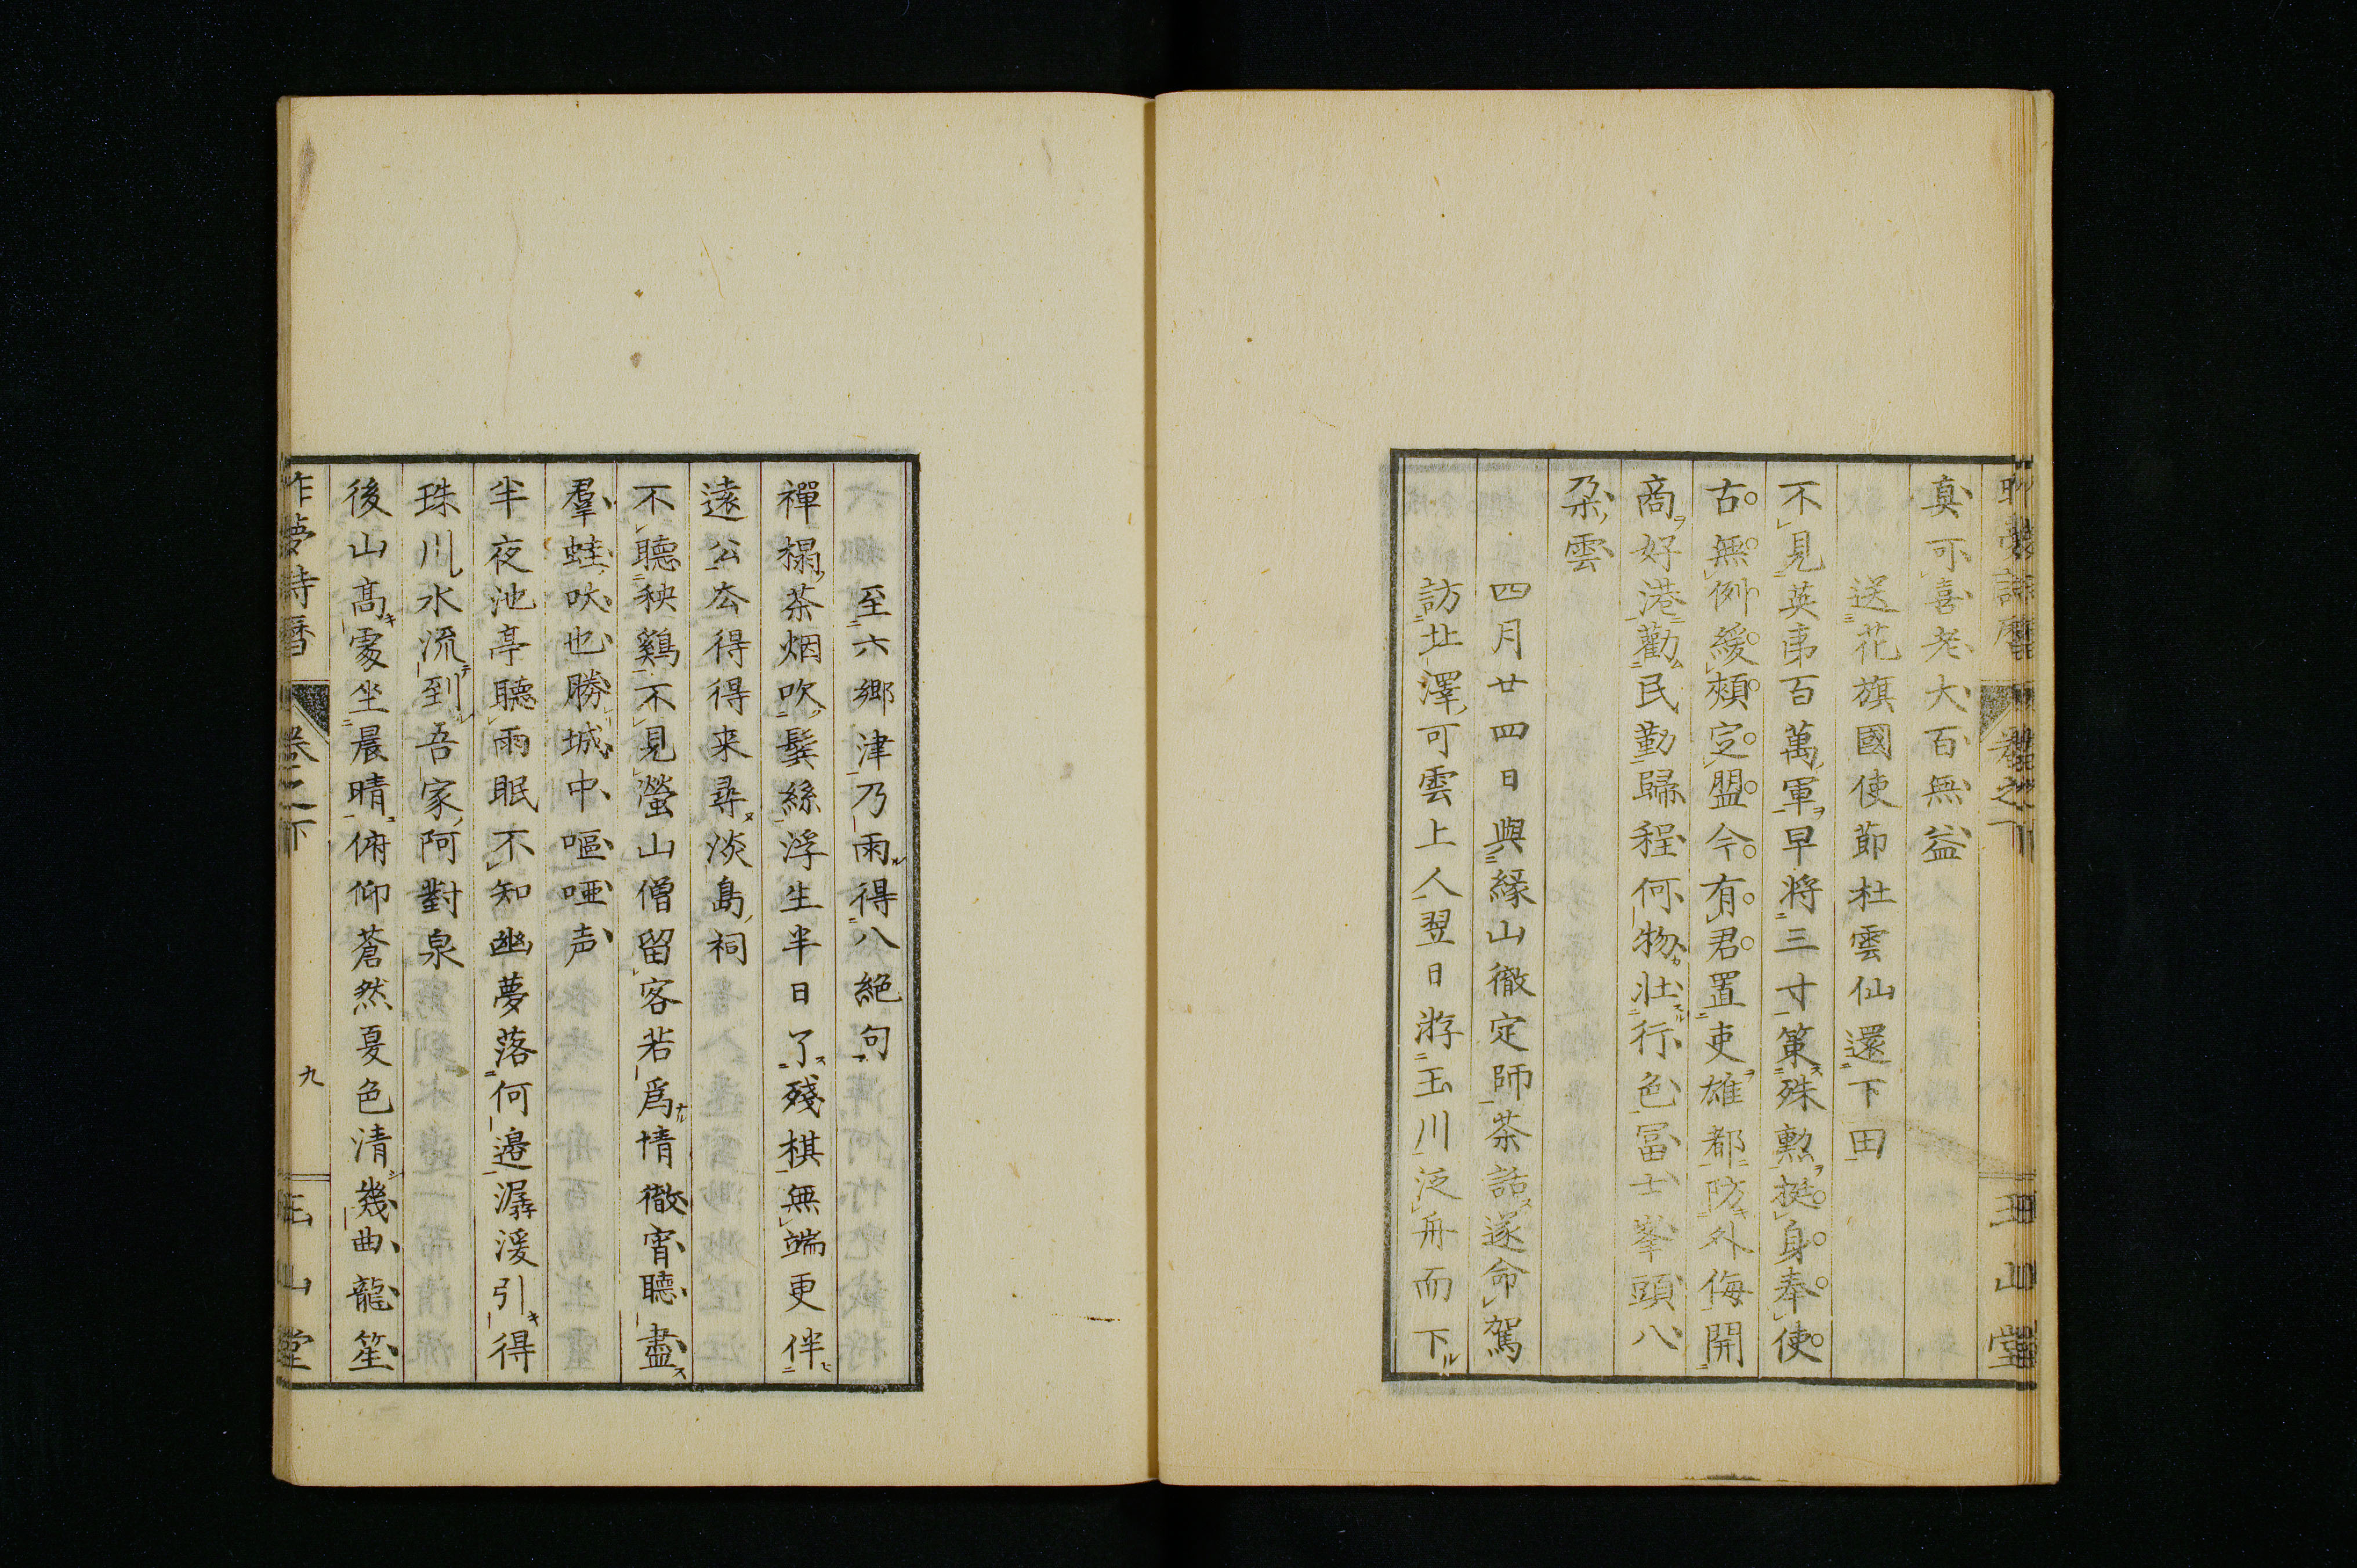 真可喜老大百無益
送花旗國使節杜雲仙還下田
不見英夷百萬軍早將三寸策殊勲挺身奉使
古無例緩頰定盟今有君置吏雄都防外侮開
商好港勸民勤歸程何物壯行色冨士峯頭八
朶雲
四月廿四日與緣山徹定師茶話遂命駕
訪北澤可雲上人翌日游玉川泛舟而下
至六郷津乃雨得八絶句
禪榻茶烟吹鬢絲浮生半日了殘棋無端更伴
遠公去得得来尋淡島祠
不聽秧鷄不見螢山僧留客若爲情徹宵聽盡
羣蛙吠也勝城中嘔啞声
半夜池亭聽雨眠不知幽夢落何邉潺湲引得
珠川水流到吾家阿對泉
後山高處坐晨晴俯仰蒼然夏色清幾曲龍笙
昨夢詩曆 卷之下 九 玉山堂